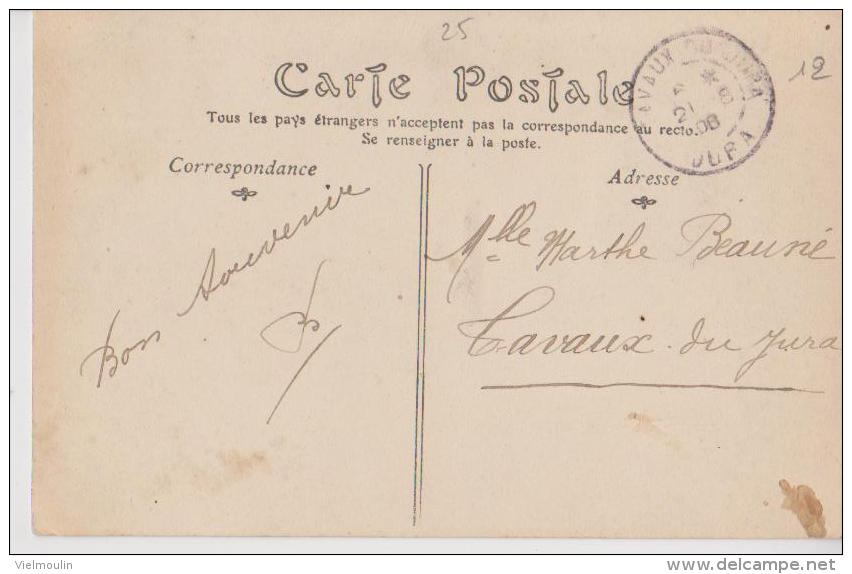 25
12
Carte Postale
Tous les pays étrangers n'acceptent pas la correspondance au recto.
Se renseigner à la poste.
TAVAUX DU JURA
JURA
Correspondance
Adresse
Bon souvenir
B
Mlle Marthe Beauné
Tavaux du Jura
Vielmoulin
delcampe.net